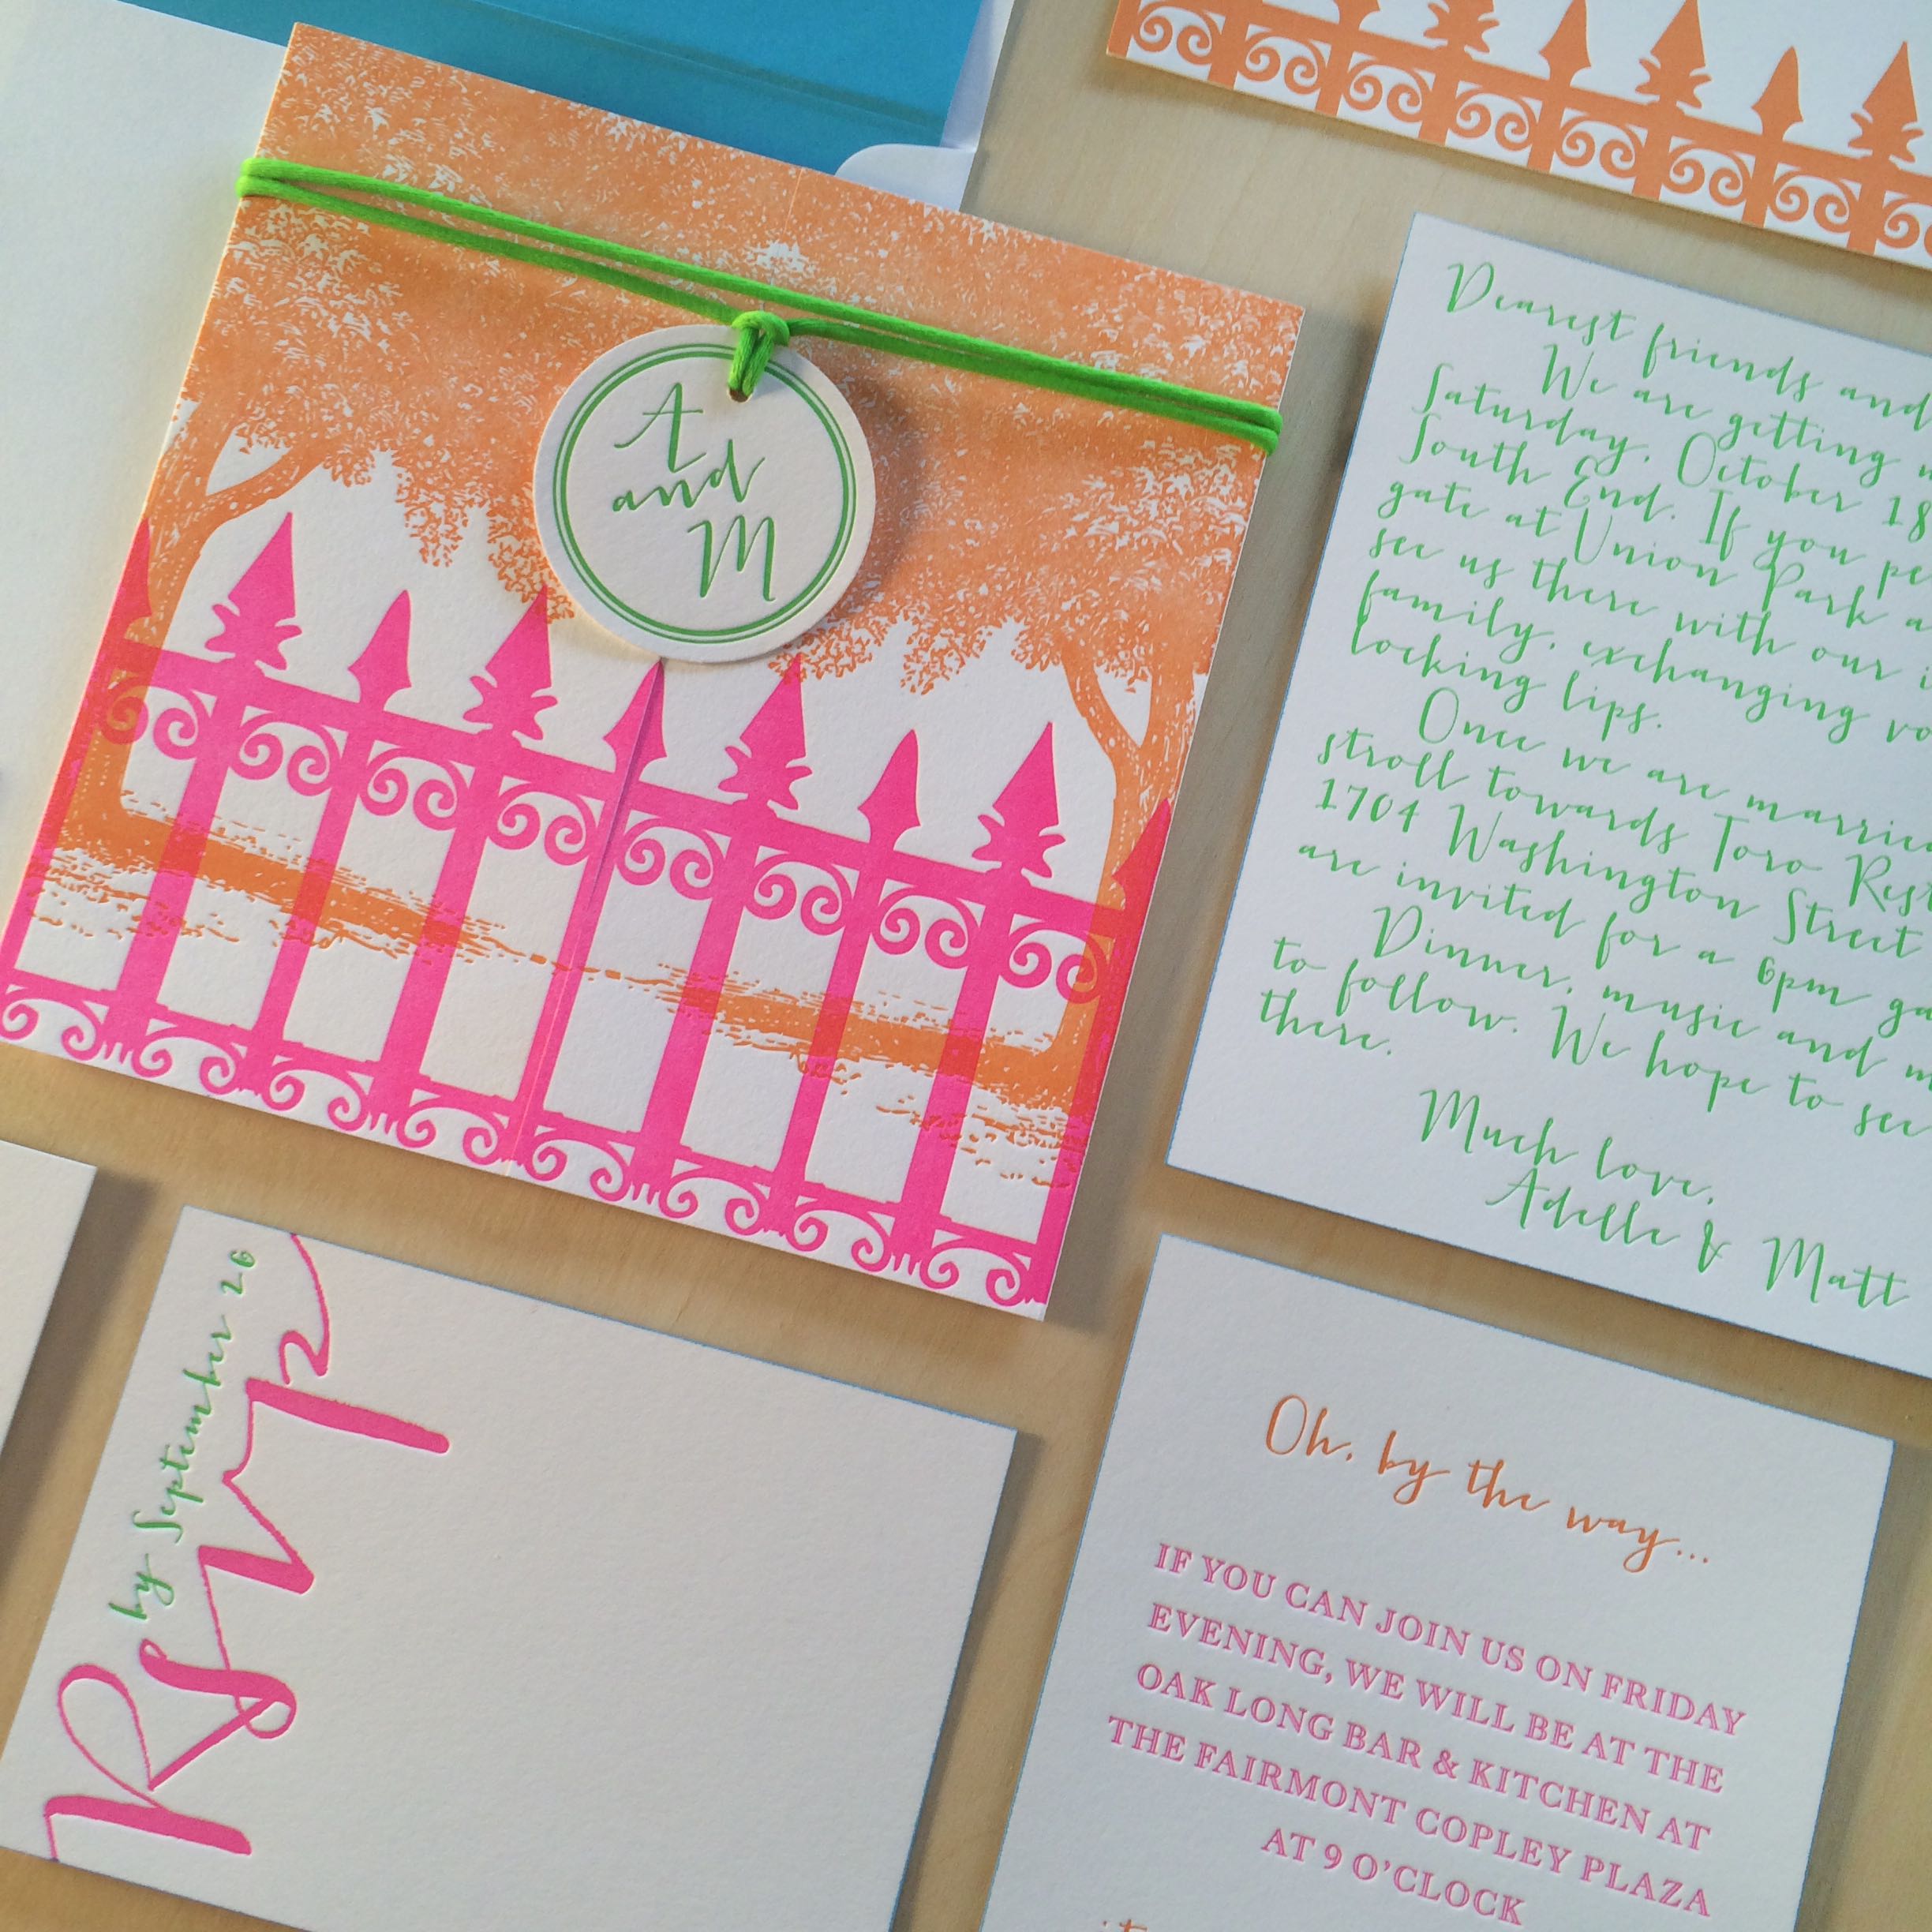 A
and
M
Dearest friends and
We are getting
Saturday, October 18
South End. If you
gate at Union Park
see us there with our
family, exchanging
locking lips.
Once we are
stroll towards Toro
1704 Washington Street
are invited for a 6pm
Dinner, music and
to follow. We hope to see
there.
Much love,
Adelle & Matt
by September 26
RSVP
Oh, by the way...
IF YOU CAN JOIN US ON FRIDAY
EVENING, WE WILL BE AT THE
OAK LONG BAR & KITCHEN AT
THE FAIRMONT COPLEY PLAZA
AT 9 O'CLOCK